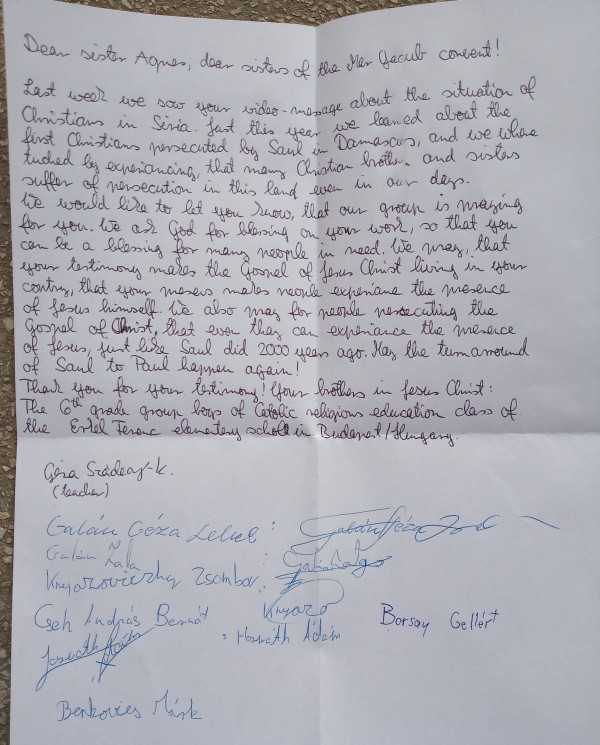 Dear sister Agnes, dear sisters of the Mar Yacub convent!
Last week we saw your video-message about the situation of
Christians in Siria. Just this year we leaned about the
first Christians persecuted by Saul in Damascus, and we where
tuched by experiancing, that many Christian brother- and sisters
suffer of persecution in this land even in our days.
We would like to let you know, that our group is praying
for you. We ask God for blessing on your work, so that you
can be a blessing for many people in need. We pray, that
your testimony makes the Gospel of Jesus Christ living in your
contry, that your makes people experiane the presence
of Jesus himself. We also pray for people persecuting the
Gospel of Christ, that even they can experiance the presence
of Jesus, just like Saul did 2000 years ago. May the turnarround
of Saul to Paul happen again!
Thank you for your testimony! Your brothers in Jesus Christ:
The 6th grade group boys of Catolic religious education class of
the Ferenc elementery in Budapest/Hungary.
Géza
(teacher)
Galán Géza Lehel :
Galán Zala
Zsombor :
Cseh András Bernát
: Horváth Ádám
Borsay Gellért
Berkovics Márk